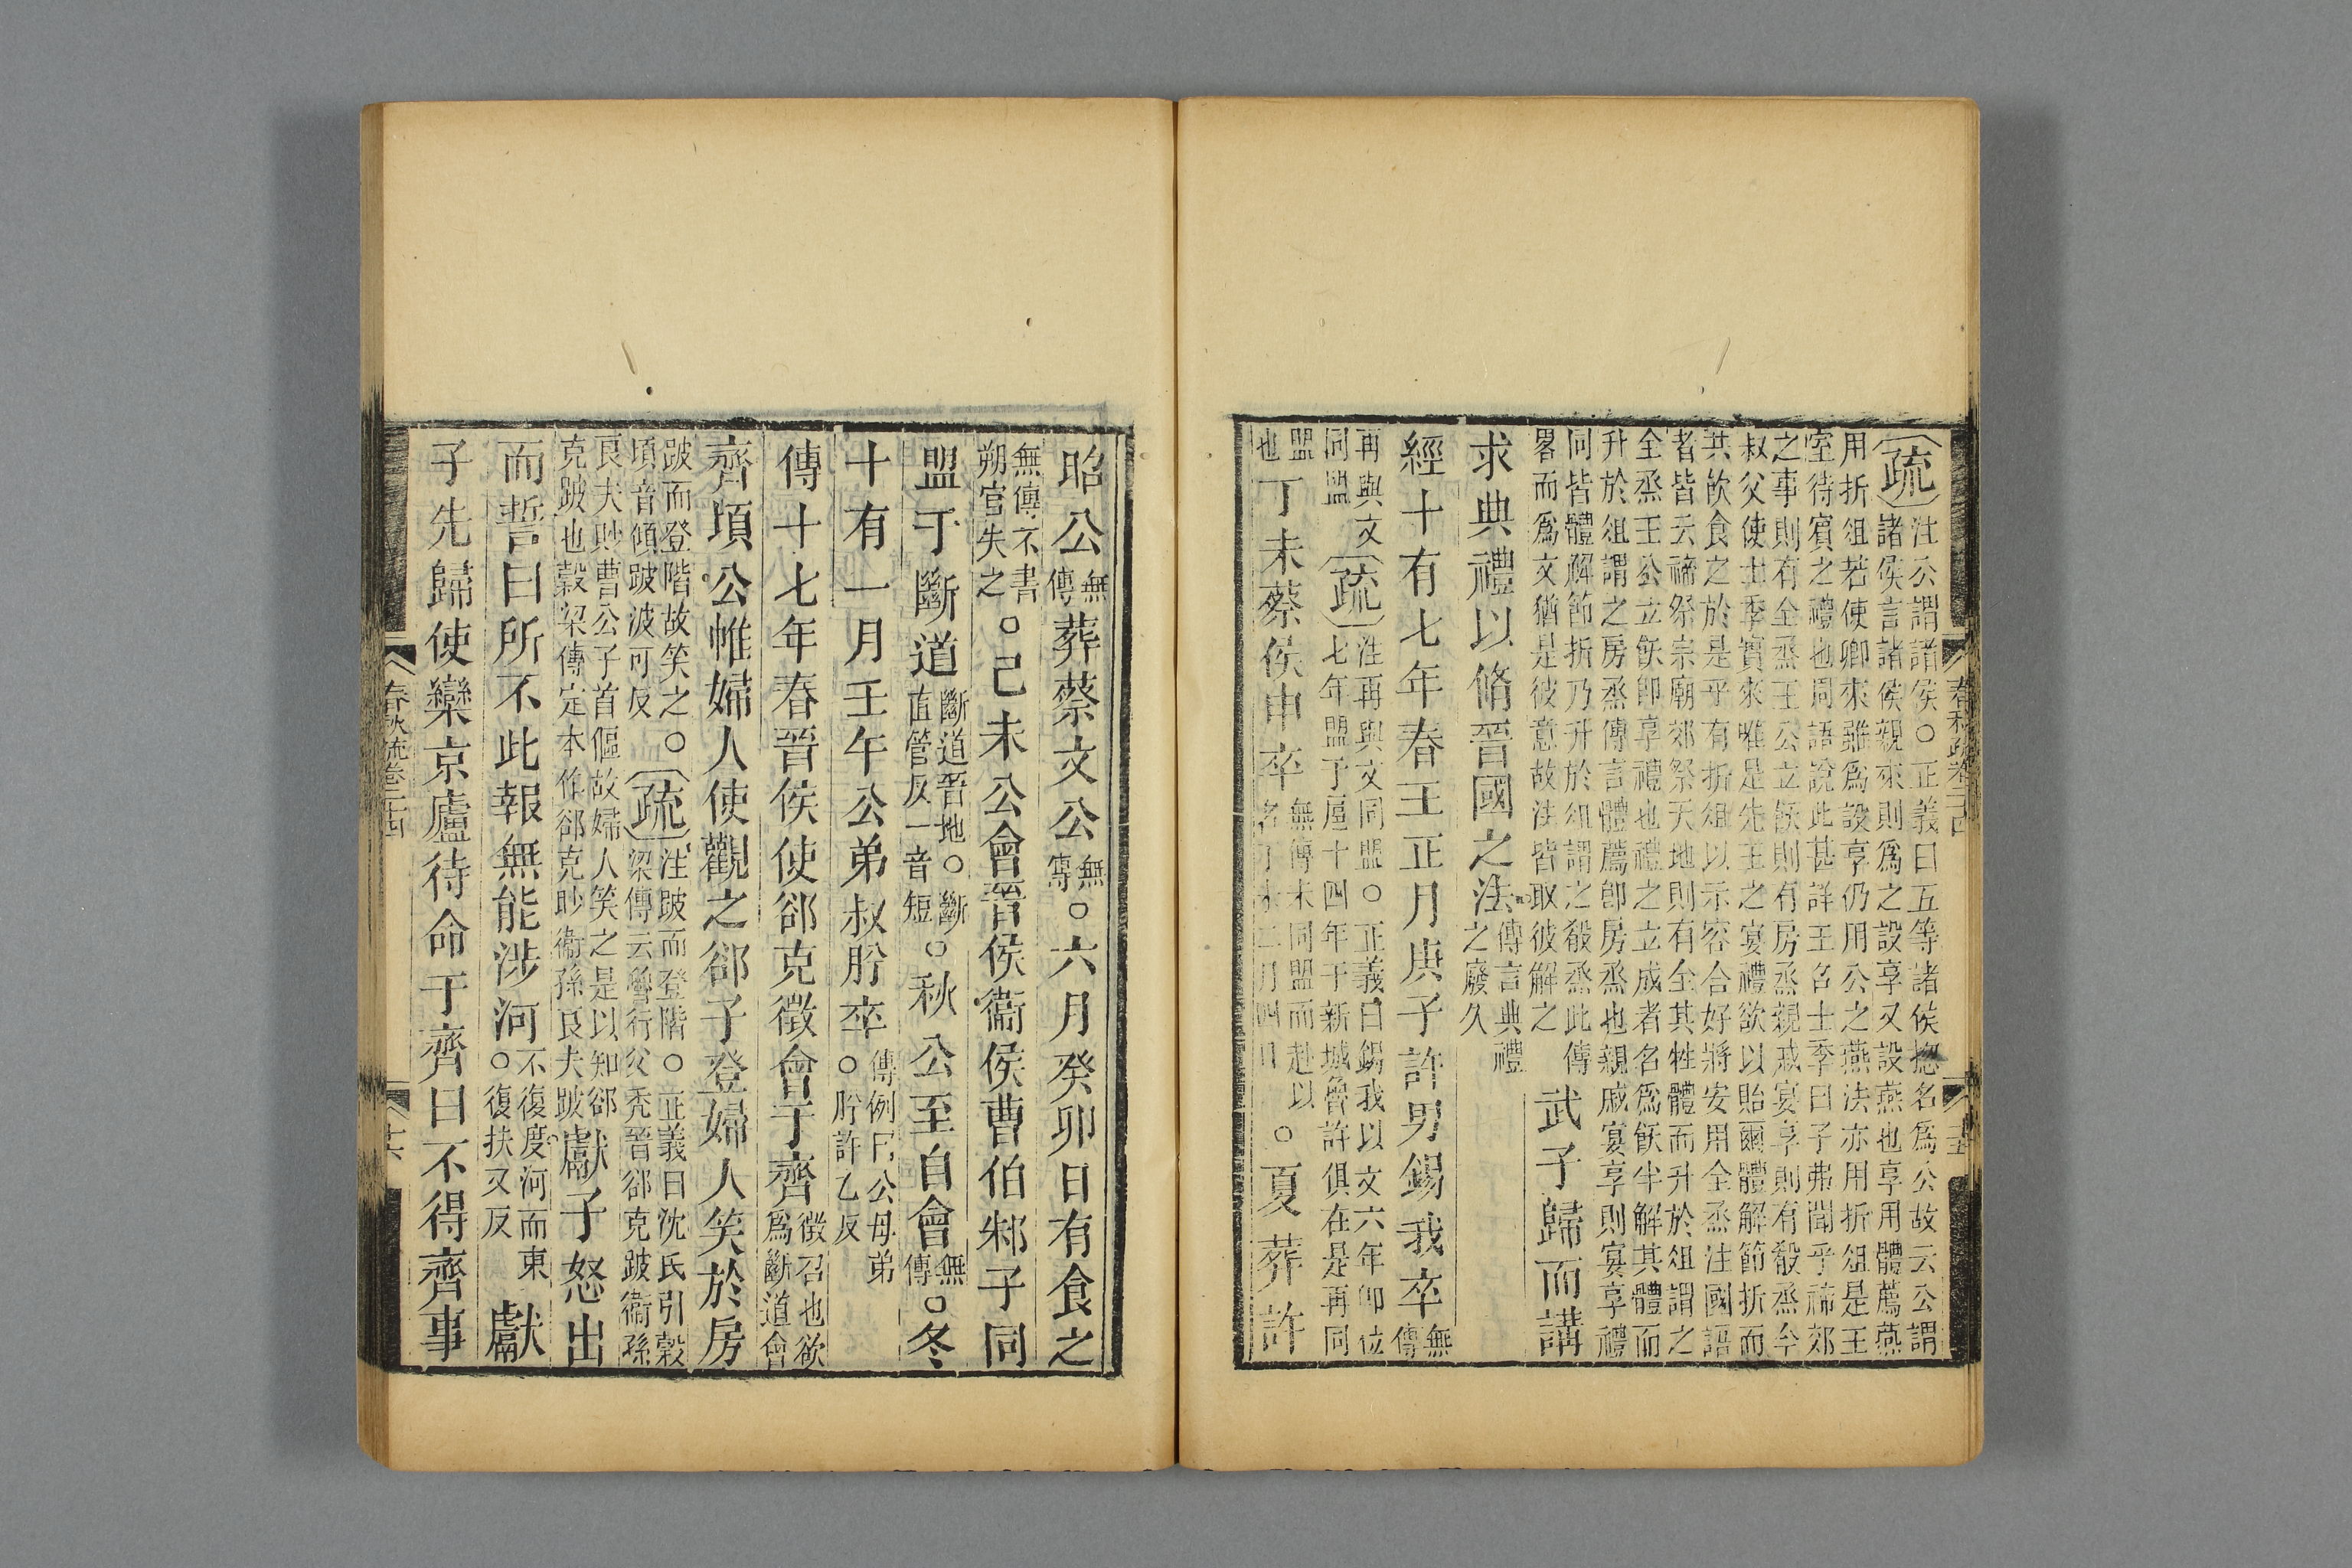 疏 注公謂諸侯○正義曰五等諸侯摠名爲公故云公謂
諸侯言諸侯親來則爲之設享又設燕也享用體薦燕
用折俎若使卿來雖爲設享仍用公之燕法亦用折俎是王
室待賓之禮也周語說此甚詳王召士季曰子弗聞乎禘郊
之事則有全烝王公立飫則有房烝親戚宴享則有殽烝今
叔父使士季實來唯是先王之宴禮欲以貽爾體解節折而
共飲食之於是乎有折俎以示容合好將安用全烝注國語
者皆云禘祭宗廟郊祭天地則有全其牲體而升於俎謂之
全烝王公立飫即享禮也禮之立成者名爲飫半解其體而
升於俎謂之房烝傳言體薦即房烝也親戚宴享則宴享禮
同皆體解節折乃升於俎謂之殽烝此傳
畧而爲文猶是彼意故注皆取彼解之
武子歸而講
求典禮以脩晉國之法 傳言典禮
之廢久
經十有七年春王正月庚子許男錫我卒 無
傳
再與文
同盟 疏 注再與文同盟○正義曰錫我以文六年即位
七年盟于扈十四年于新城魯許俱在是再同
盟
也 丁未蔡侯申卒 無傳未同盟而赴以
名丁未二月四日 ○夏葬許
春秋疏卷二十四
昭公 無
傳 葬蔡文公 無
傳 ○六月癸卯日有食之
無傳不書
朔官失之 ○己未公會晉侯衞侯曹伯邾子同
盟于斷道 斷道晉地○斷
直管反一音短 ○秋公至自會 無
傳 ○冬
十有一月壬午公弟叔肸卒 傳例曰公母弟
○肸許乙反
傳十七年春晉侯使郤克徵會于齊 徵召也欲
爲斷道會
齊頃公帷婦人使觀之郤子登婦人笑於房
跛而登階故笑之○
頃音傾跛波可反 疏 注跛而登階○正義曰沈氏引穀
梁傳云魯行父禿晉郤克跛衞孫
良夫眇曹公子首傴故婦人笑之是以知郤
克跛也穀梁傳定本作郤克眇衞孫良夫跛 獻子怒出
而誓曰所不此報無能涉河 不復度河而東
○復扶又反 獻
子先歸使欒京廬待命于齊曰不得齊事
春秋疏卷二十四